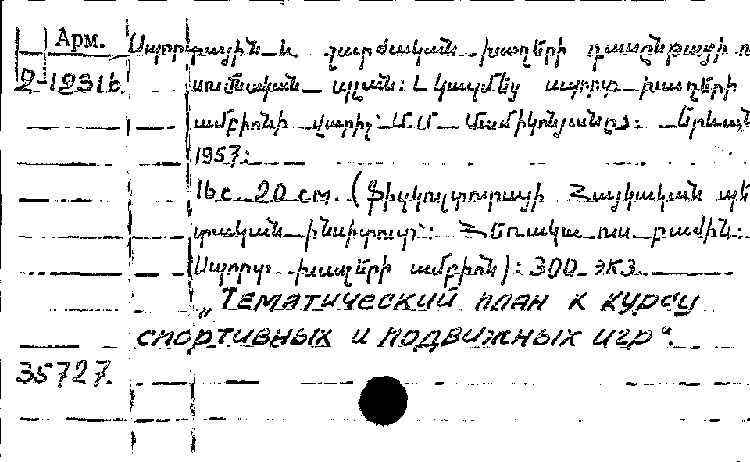 Арм. Սպորտային և շարժական խաղերի դասընթացի
2-1231б. պլան: Կազմեց սպորտ խաղերի
ամբիոնի վարիչ Մ.Մ. Մամիկոնյանը: Երևան
1957:
16 с. 20 см. (Ֆիզկուլտուրայի Հայկական պե
տական ինստիտուտ: Հեռակա ուս. բաժին:
Սպորտ խաղերի ամբիոն): 300 экз.
„Тематический план к курсу
спортивных и подвижных игр“.
35727.